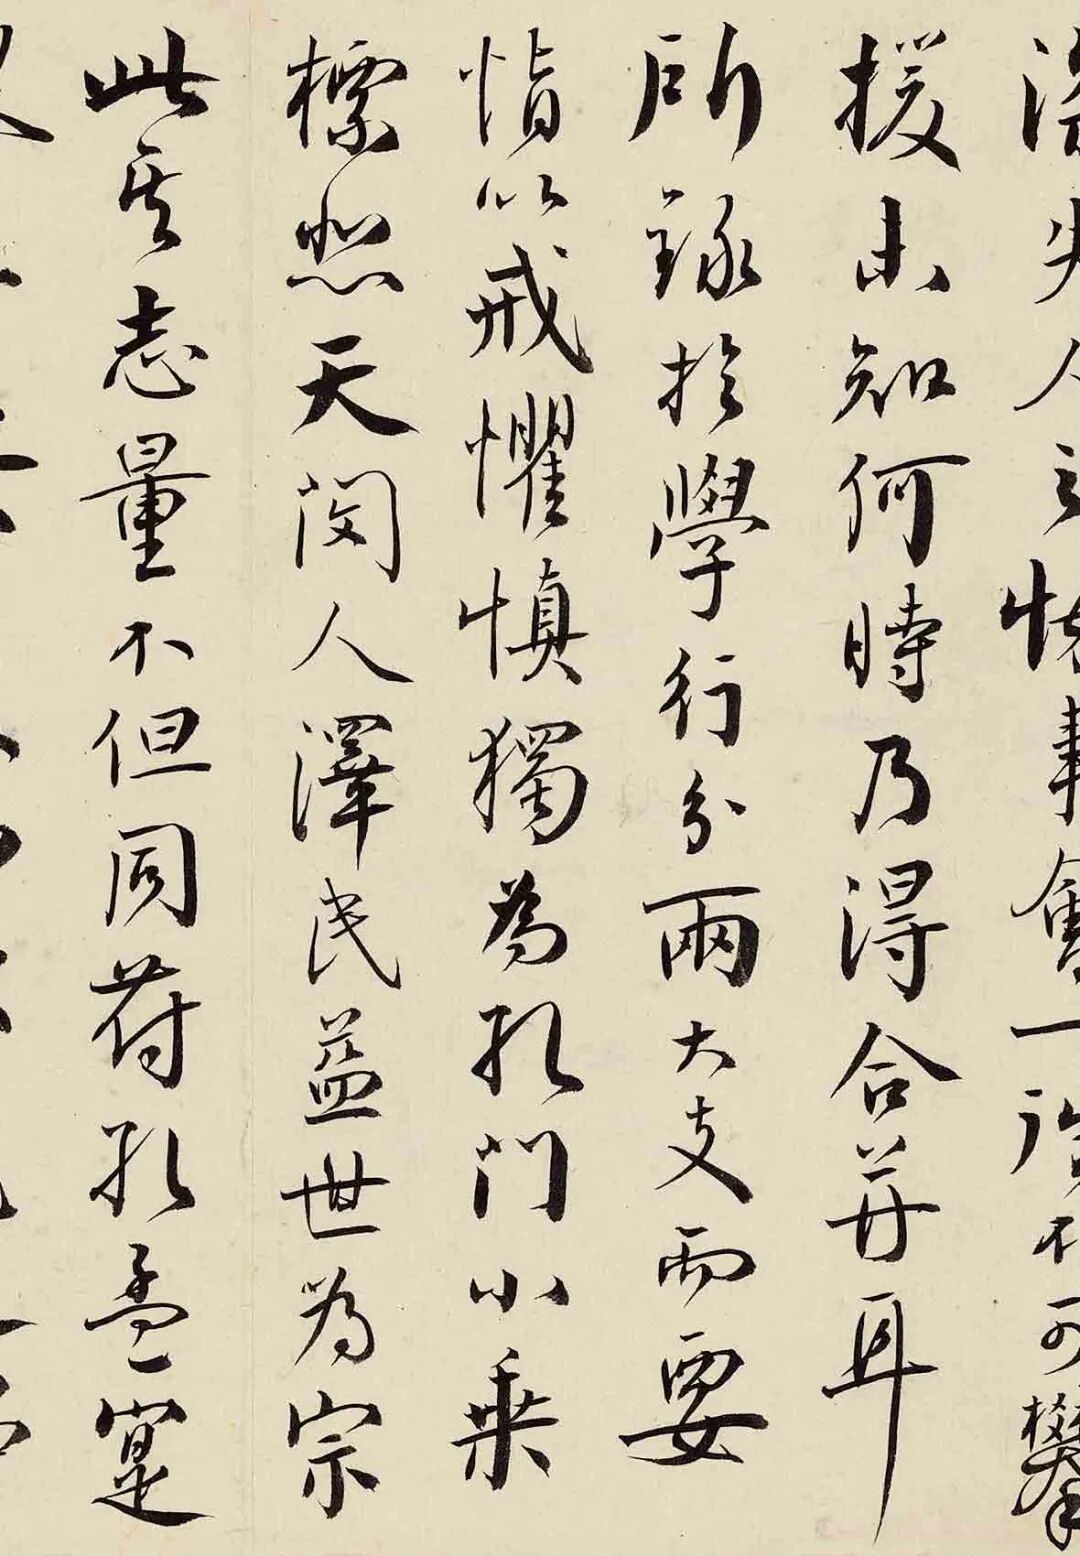 失人之懷事會一許不可攀
援未知何時乃得合并耳
所録於學行分兩大支而要
惰以戒懼慎獨為孔門小乘
標悲天閔人澤民益世為宗
此其志量不但同符孔孟寔